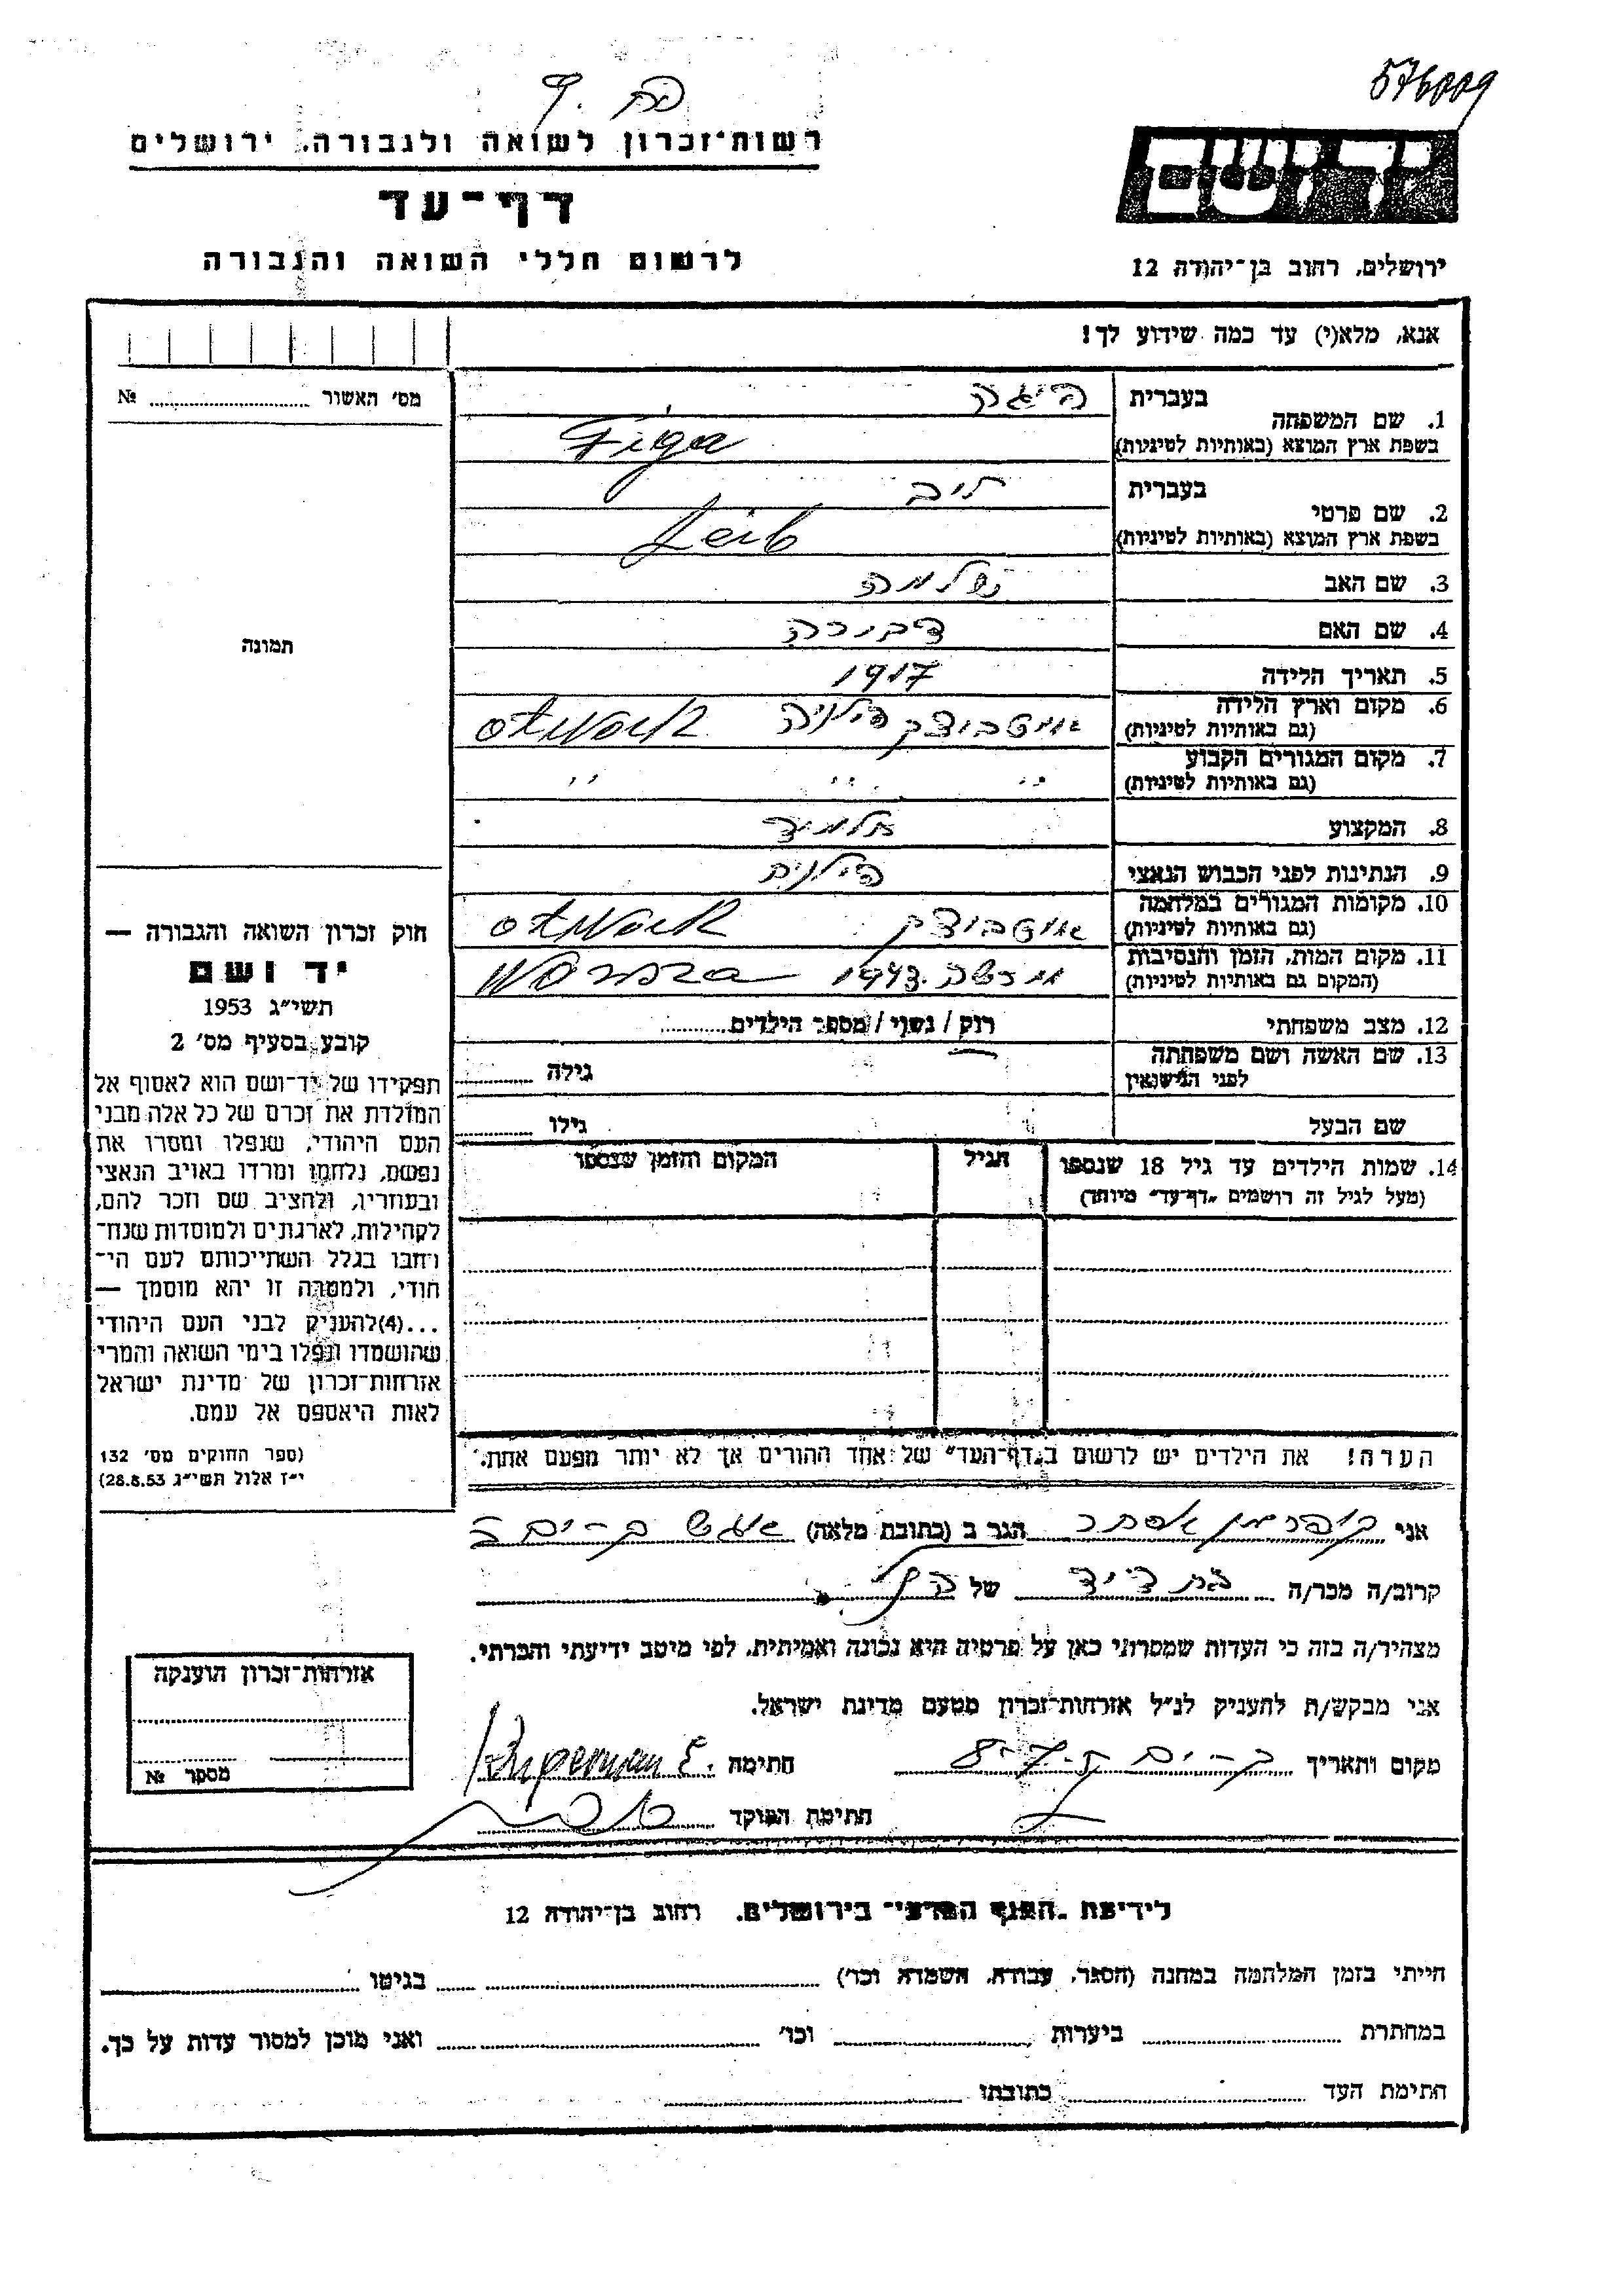 576009
רשות־זכרון לשואה ולגבורה, ירושלים
יד ושם
דף־עד
לרשום חללי השואה והגבורה
ירושלים, רחוב בן־יהודה 12
אנא, מלא(י) עד כמה שידוע לך!
מס׳ האשור ........ №
תמונה
1. שם המשפחה בעברית פיגה
בשפת ארץ המוצא (באותיות לטיניות) Figa
2. שם פרטי בעברית ליב
בשפת ארץ המוצא (באותיות לטיניות) Leib
3. שם האב שלמה
4. שם האם דבורה
5. תאריך הלידה 1917
6. מקום וארץ הלידה (גם באותיות לטיניות) אוטבוצק פולניה otwock
7. מקום המגורים הקבוע (גם באותיות לטיניות) ״ ״ ״
8. המקצוע תלמיד
9. הנתינות לפני הכבוש הנאצי פולנית
10. מקומות המגורים במלחמה (גם באותיות לטיניות) אוטבוצק otwock
11. מקום המות, הזמן והנסיבות (המקום גם באותיות לטיניות) ורשה 1943
12. מצב משפחתי רווק / נשוי / מספר הילדים........
13. שם האשה ושם משפחתה לפני הנישואין גילה ........
שם הבעל גילו ........
14. שמות הילדים עד גיל 18 שנספו הגיל המקום והזמן שנספו
(מעל לגיל זה רושמים „דף־עד״ מיוחד)
הערה! את הילדים יש לרשום ב„דף־העד״ של אחד ההורים אך לא יותר מפעם אחת.
חוק זכרון השואה והגבורה —
יד ושם
תשי״ג 1953
קובע בסעיף מס׳ 2
תפקידו של יד־ושם הוא לאסוף אל
המולדת את זכרם של כל אלה מבני
העם היהודי, שנפלו ומסרו את
נפשם, נלחמו ומרדו באויב הנאצי
ובעוזריו, ולהציב שם וזכר להם,
לקהילות, לארגונים ולמוסדות שנח־
רחבו בגלל השתייכותם לעם הי־
הודי, ולמטרה זו יהא מוסמך —
...(4)להעניק לבני העם היהודי
שהושמדו ונפלו בימי השואה והמרי
אזרחות־זכרון של מדינת ישראל
לאות היאספם אל עמם.
(ספר החוקים מס׳ 132
י״ז אלול תשי״ג 28.8.53)
אני קופרמן אסתר הגר ב (כתובת מלאה) בת־ים
קרוב/ה מכר/ה בת דוד של
מצהיר/ה בזה כי העדות שמסרתי כאן על פרטיה היא נכונה ואמיתית, לפי מיטב ידיעתי והכרתי.
אני מבקש/ת להעניק לנ״ל אזרחות־זכרון מטעם מדינת ישראל.
מקום ותאריך בת־ים חתימה Kuperman E.
חתימת הפוקד
אזרחות־זכרון הוענקה
מספר №
לידיעת „הגנף המרכזי״ בירושלים, רחוב בן־יהודה 12
הייתי בזמן המלחמה במחנה (הסגר, עבודה, השמדה וכו׳) ........ בגיטו ........
במחתרת ........ ביערות ........ וכו׳ ........ ואני מוכן למסור עדות על כך.
חתימת העד ........ כתובתו ........